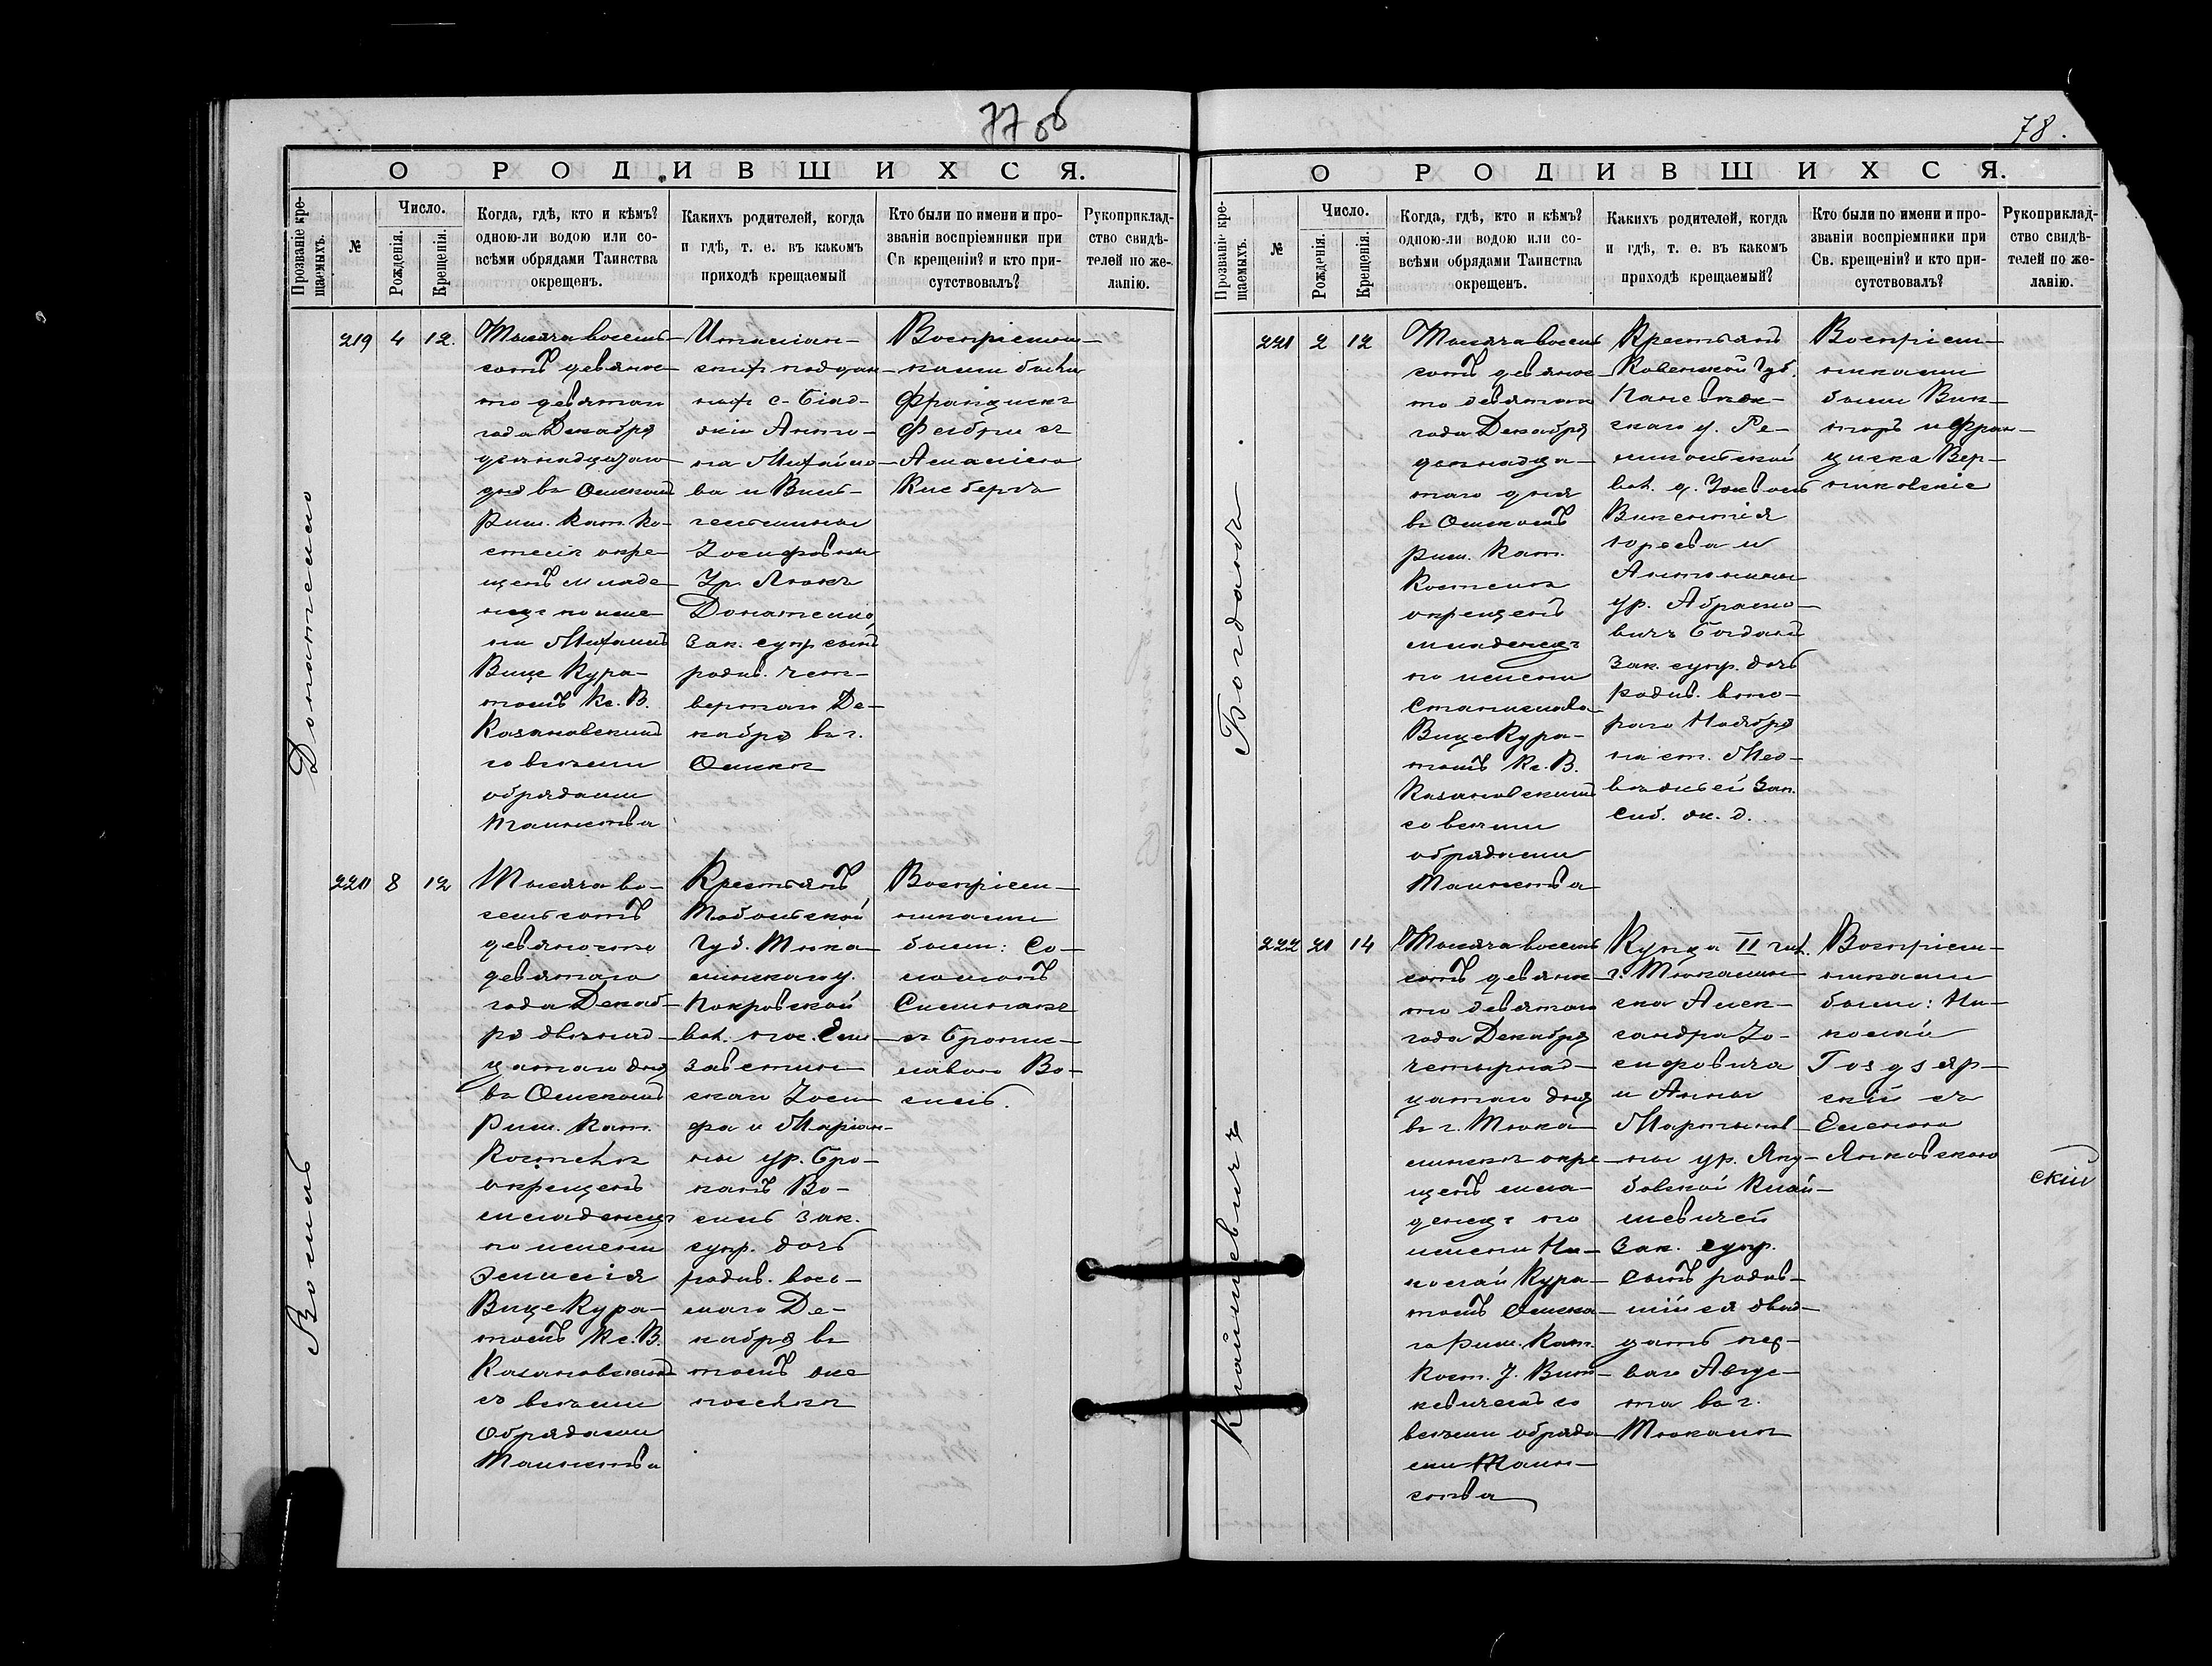 77 об
О РОДИВШИХСЯ.
Прозваніе кре-
щаемыхъ.
№
Число.
Рожденія.
Крещенія.
Когда, гдѣ, кто и кѣмъ?
одною-ли водою или со-
всѣми обрядами Таинства
окрещенъ.
Какихъ родителей, когда
и гдѣ, т. е. въ какомъ
приходѣ крещаемый
Кто были по имени и про-
званіи воспріемники при
Св крещеніи? и кто при-
сутствовалъ?
Рукоприклад-
ство свидѣ-
телей по же-
ланію.
Донателло
219 4 12.
Тысяча восемь
сотъ девянос-
то девятаго
года Декабря
двѣнадцатаго
дня въ Омскомъ
Рим. Кат. Ко-
стелѣ окре-
щенъ младе-
нецъ по име-
ни Михаилъ
Вице Кура-
томъ Кс. В.
Казановскимъ
со всѣми
обрядами
Таинства
Италіан-
скихъ поддан-
ныхъ с-
Анто-
на Михайло-
ва и Вик-
Іосифовны
Ур.
Донателло
Зак. супр сынъ
родив. чет-
вертаго Де-
кабря въ г.
Омскѣ
Воспріемни-
ками были
Францискъ
съ
220 8 12
Тысяча во-
семьсотъ
девяносто
девятаго
года Декаб-
ря двѣнад-
цатаго дня
въ Омскомъ
Рим. Кат.
Костелѣ
окрещенъ
младенецъ
по имени
Эмилія
Вице Кура-
томъ Кс. В.
Казановскимъ
со всѣми
Обрядами
Таинства
Крестьянъ
Тобольской
Губ. Тюка-
линскаго у.
Покровской
вол. пос. Ели-
заветин-
скаго Іоси-
фа и Маріан-
ны ур.
зак.
супр. дочь
родив. вось-
маго Де-
кабря въ
томъ же
поселкѣ
Воспріем-
никами
были: Со-
ломонъ
съ Брони-
славою
78.
О РОДИВШИХСЯ.
Прозваніе кре-
щаемыхъ.
№
Число.
Рожденія.
Крещенія.
Когда, гдѣ, кто и кѣмъ?
одною-ли водою или со-
всѣми обрядами Таинства
окрещенъ.
Какихъ родителей, когда
и гдѣ, т. е. въ какомъ
приходѣ крещаемый?
Кто были по имени и про-
званіи воспріемники при
Св. крещеніи? и кто при-
сутствовалъ?
Рукоприклад-
ство свидѣ-
телей по же-
ланію.
Богдана
221 2 12
Тысяча восемь
сотъ девянос-
то девятаго
года Декабря
двѣнадца-
таго дня
въ Омскомъ
Рим. Кат.
Костелѣ
окрещенъ
младенецъ
по имени
Станислава
Вице Кура-
томъ Кс. В.
Казановскимъ
со всѣми
обрядами
Таинства
Крестьянъ
Ковенской Губ.
Поневѣж-
скаго у.
вол. д.
Викентія
Юрьева и
Антонины
ур. Абрамо-
вичъ Богданъ
Зак. супр. дочь
родив. вто-
раго Ноября
на ст. Мед-
вѣжьей Зап.
Сиб. ж. д.
Воспріем-
никами
были Вик-
торъ и Фран-
циска Вер-
никовскіе
222 21 14
Тысяча восемь
сотъ девянос-
то девятаго
года Декабря
четырнад-
цатаго дня
въ г. Тюка-
линскѣ окре-
щенъ мла-
денецъ по
имени Ни-
колай Кура-
томъ Омска-
го Рим. Кат.
Кост. І.
со
всѣми обряда-
ми Таин-
ства
Купца II гил.
г. Тюкалин-
ска Алек-
сандра Іо-
сифовича
и Анны
Мартынов-
ны ур. Яку-
бовской
Зак. супр.
Сынъ родив-
шійся двад-
цать пер-
ваго Авгус-
та въ г.
Тюкалин
Воспріем-
никами
были: Ни-
колай
съ
Еленою
Янковскою
скій